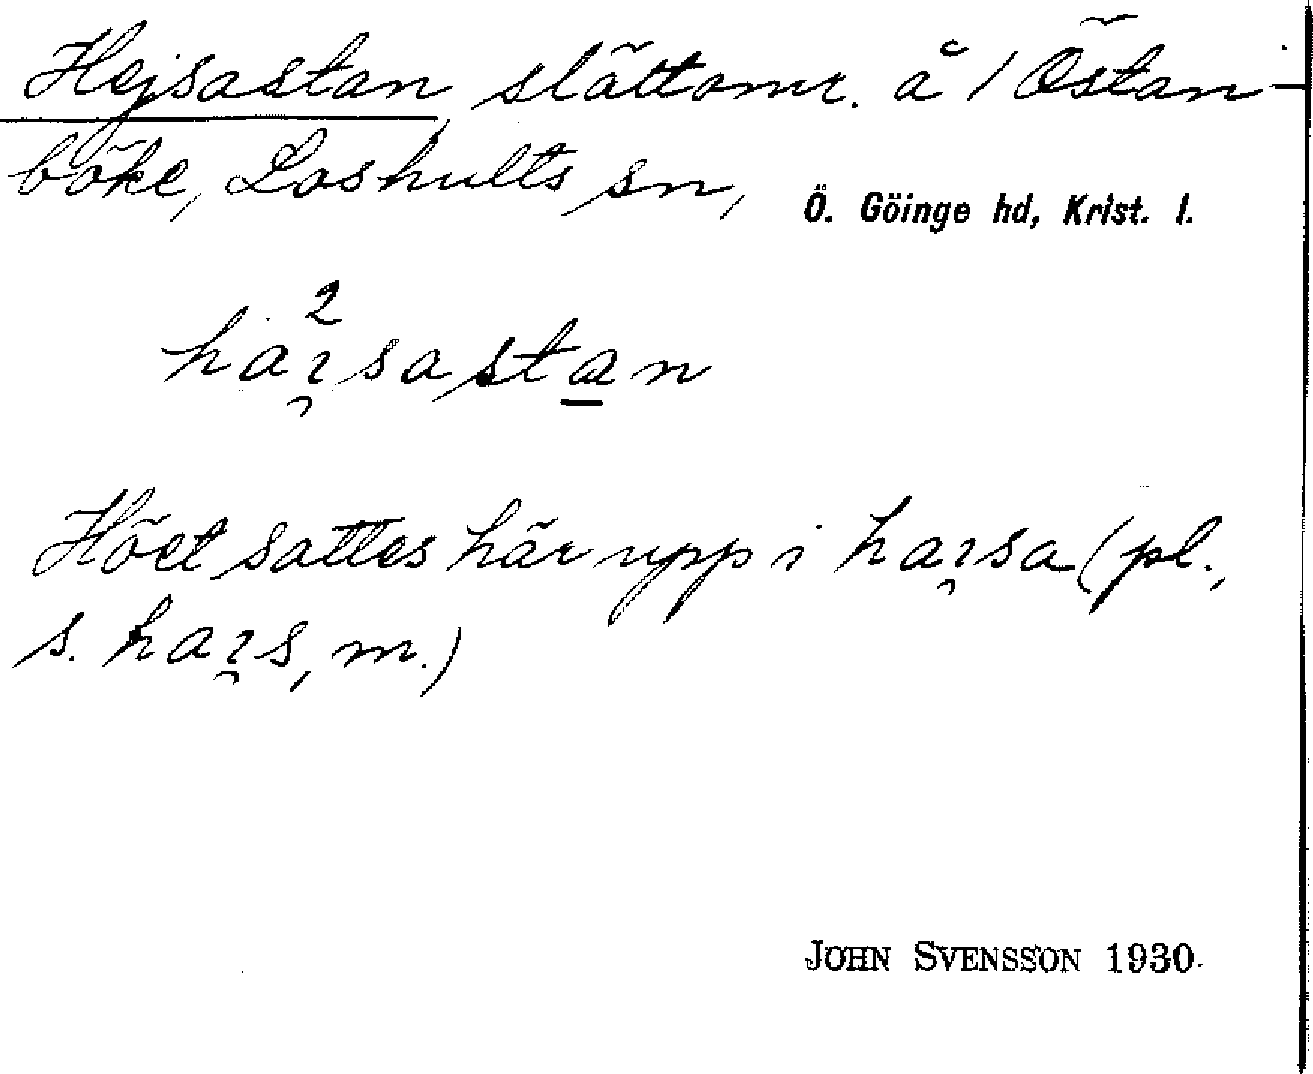 Hejsastan, slättomr. å 1 Östan-
böke, Loshults sn, Ö. Göinge hd, Krist. l.
2
haı̯sastan
Höet sattes här upp i haı̯sa (pl.,
s. haı̯s, m.)
JOHN SVENSSON 1930.